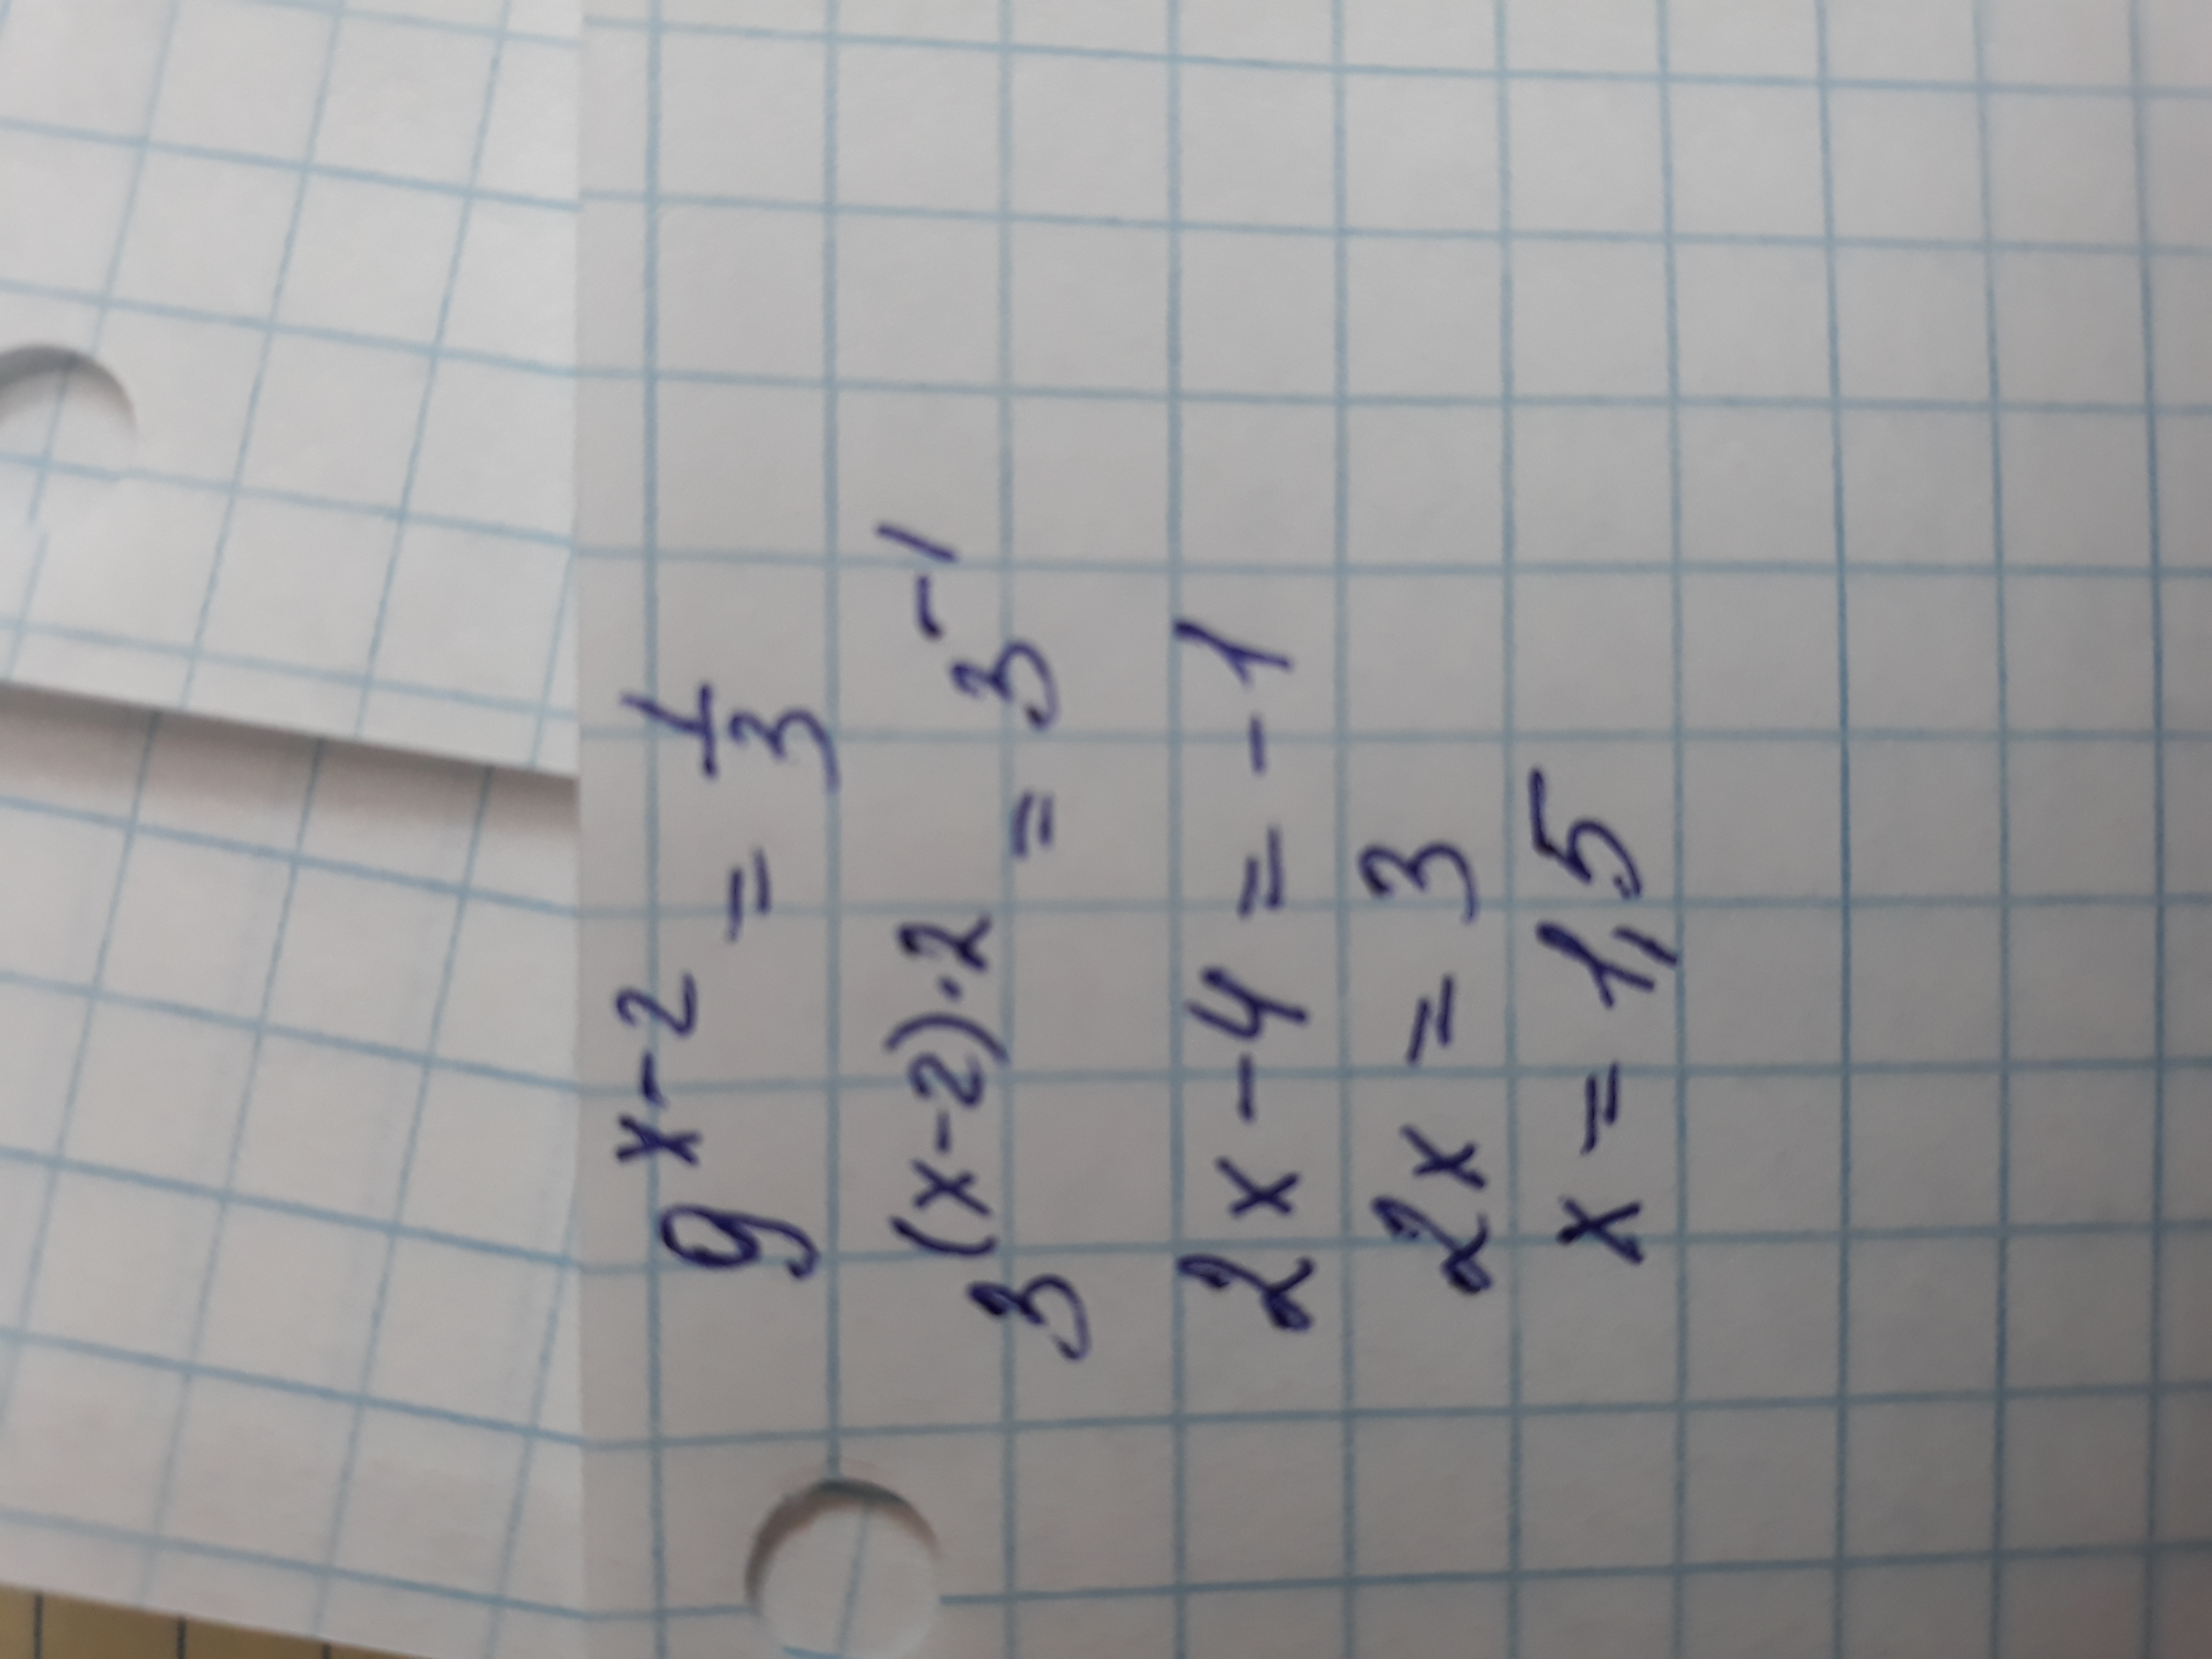 9^{x-2} = \frac{1}{3}
3^{(x-2)·2} = 3^{-1}
2x - 4 = -1
2x = 3
x = 1,5